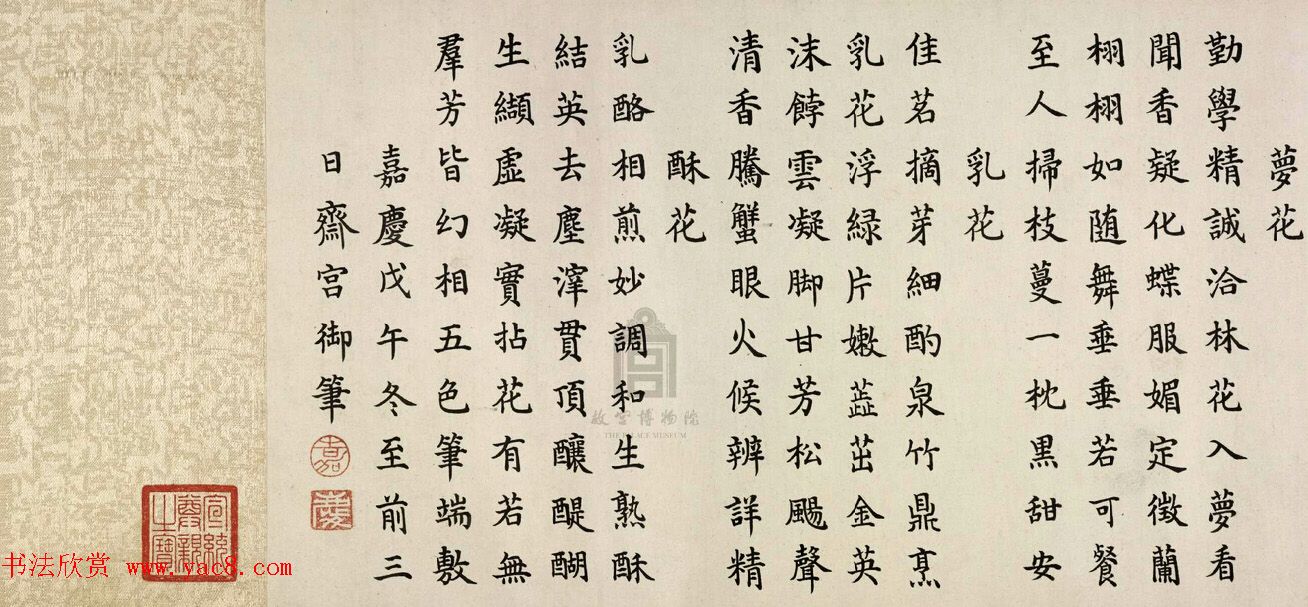 夢花
勤學精誠洽林花入夢看
聞香疑化蝶服媚定徴蘭
栩栩如随舞垂垂若可餐
至人掃枝蔓一枕黑甜安
乳花
佳茗摘芽細酌泉竹鼎烹
乳花浮緑片嫩蕋茁金英
沫餑雲凝脚甘芳松颺聲
清香騰蟹眼火候辨詳精
酥花
乳酪相煎妙調和生熟酥
結英去塵滓貫頂釀醍醐
生纈虛凝實拈花有若無
羣芳皆幻相五色筆端敷
嘉慶戊午冬至前三
日齋宮御筆
嘉
宣統
尊親
之寶
故宫博物院
THE PALACE MUSEUM
书法欣赏 www.yac8.com